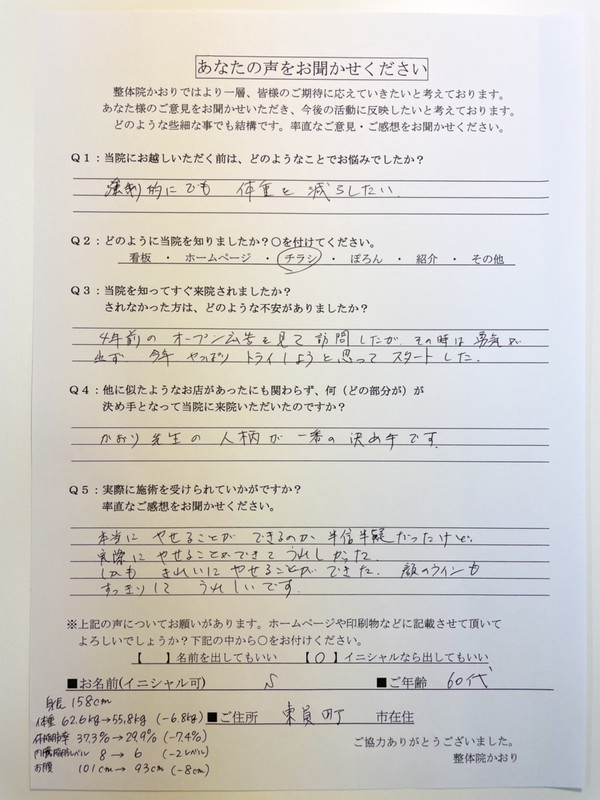 あなたの声をお聞かせください
整体院かおりではより一層、皆様のご期待に応えていきたいと考えております。
あなた様のご意見をお聞かせいただき、今後の活動に反映したいと考えております。
どのような些細な事でも結構です。率直なご意見・ご感想をお聞かせください。
Q1：当院にお越しいただく前は、どのようなことでお悩みでしたか？
強制的にでも 体重を 減らしたい
Q2：どのように当院を知りましたか？〇を付けてください。
看板 ・ ホームページ ・ チラシ ・ ぽろん ・ 紹介 ・ その他
Q3：当院を知ってすぐ来院されましたか？
されなかった方は、どのような不安がありましたか？
4年前の オープン広告を見て 訪問したが、その時は 勇気が
出ず 今年 やっぱり トライしようと思って スタートした。
Q4：他に似たようなお店があったにも関わらず、何（どの部分が）が
決め手となって当院に来院いただいたのですか？
かおり先生の 人柄が 一番の 決め手です。
Q5：実際に施術を受けられていかがですか？
率直なご感想をお聞かせください。
本当に やせることが できるのか 半信半疑だったけど、
実際に やせることができて うれしかった
しかも きれいに やせることが できた。 顔のラインも
すっきりして うれしいです。
※上記の声についてお願いがあります。ホームページや印刷物などに記載させて頂いて
よろしいでしょうか？下記の中から〇をお付けください。
【　】名前を出してもいい 【〇】イニシャルなら出してもいい
■お名前(イニシャル可) S ■ご年齢 60代
身長 158cm
体重 62.6kg→55.8kg (-6.8kg) ■ご住所 東員町 市在住
体脂肪率 37.3%→29.9% (-7.4%)
内臓脂肪レベル 8→6 (-2レベル)
お腹 101cm→93cm (-8cm)
ご協力ありがとうございました。
整体院かおり